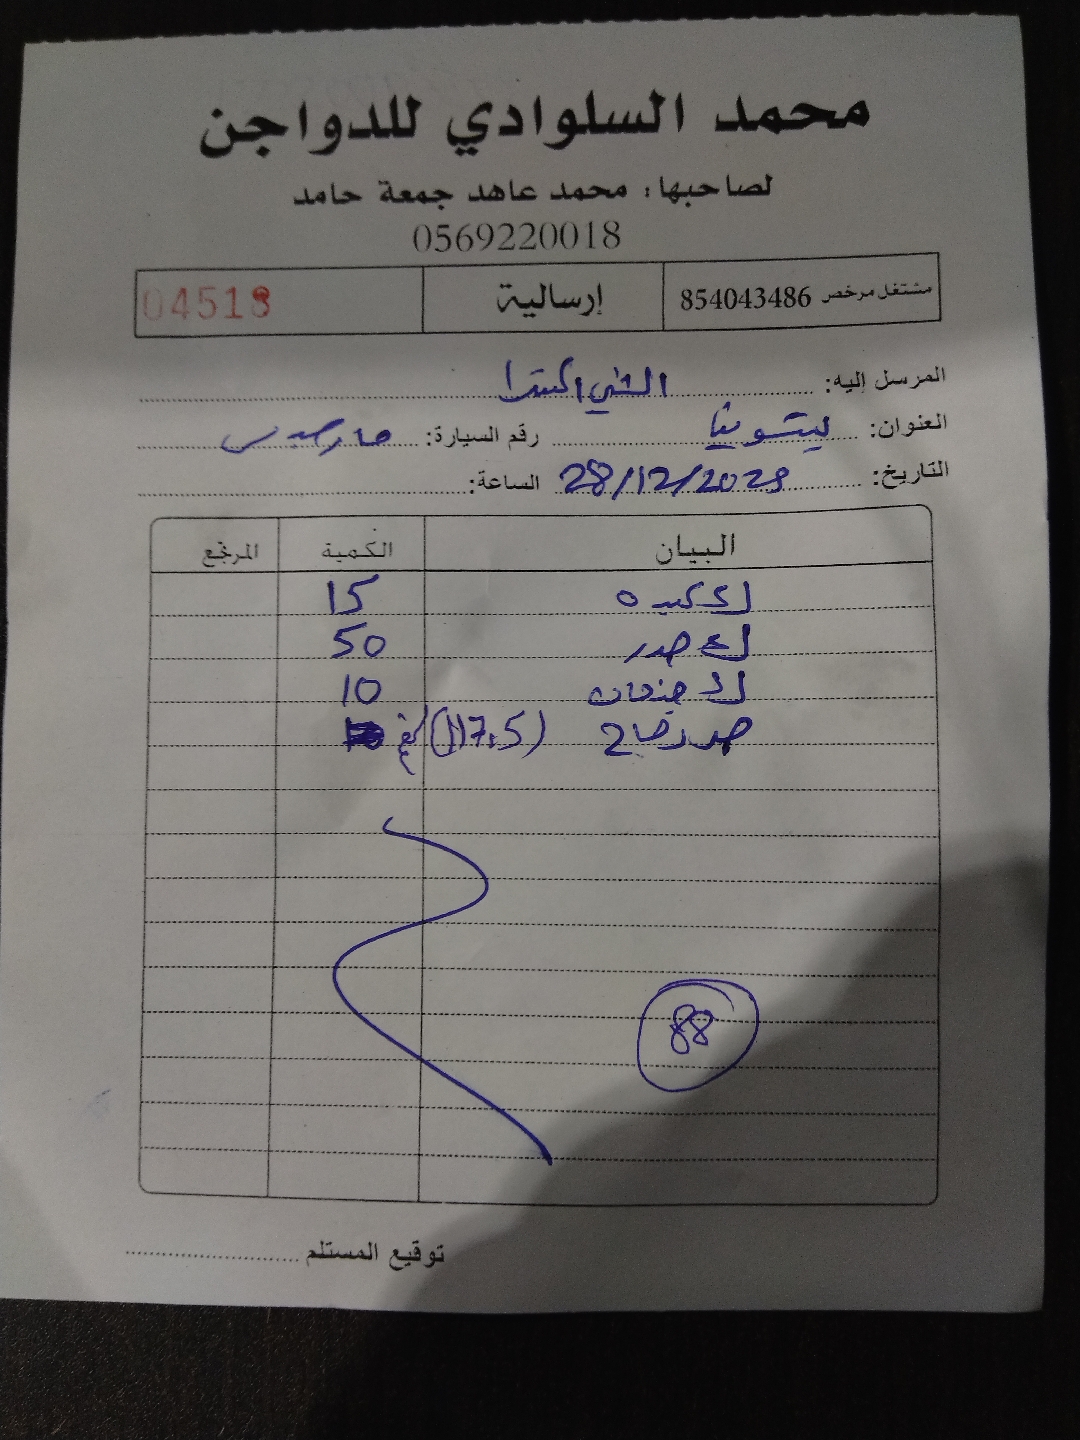 محمد السلوادي للدواجن
لصاحبها: محمد عاهد جمعة حامد
0569220018
مشتغل مرخص 854043486 إرسالية 04518
المرسل إليه:
العنوان: ليتسوينا رقم السيارة:
التاريخ: 28/12/2023 الساعة:
البيان الكمية المرتجع
كبده 15
صدر 50
10
صدر (117.5) كغم
88
توقيع المستلم